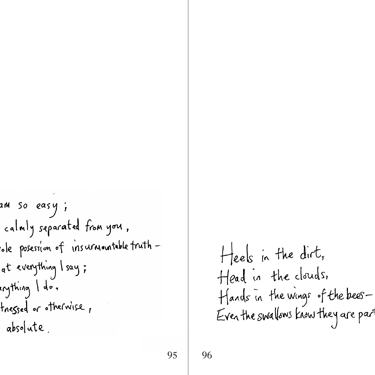 am so easy;
calmly separated from you,
ole posession of insurmountable truth—
at everything I say;
rything I do,
tnessed or otherwise,
absolute.
95
Heels in the dirt,
Head in the clouds,
Hands in the wings of the bees—
Even the swallows know they are part
96